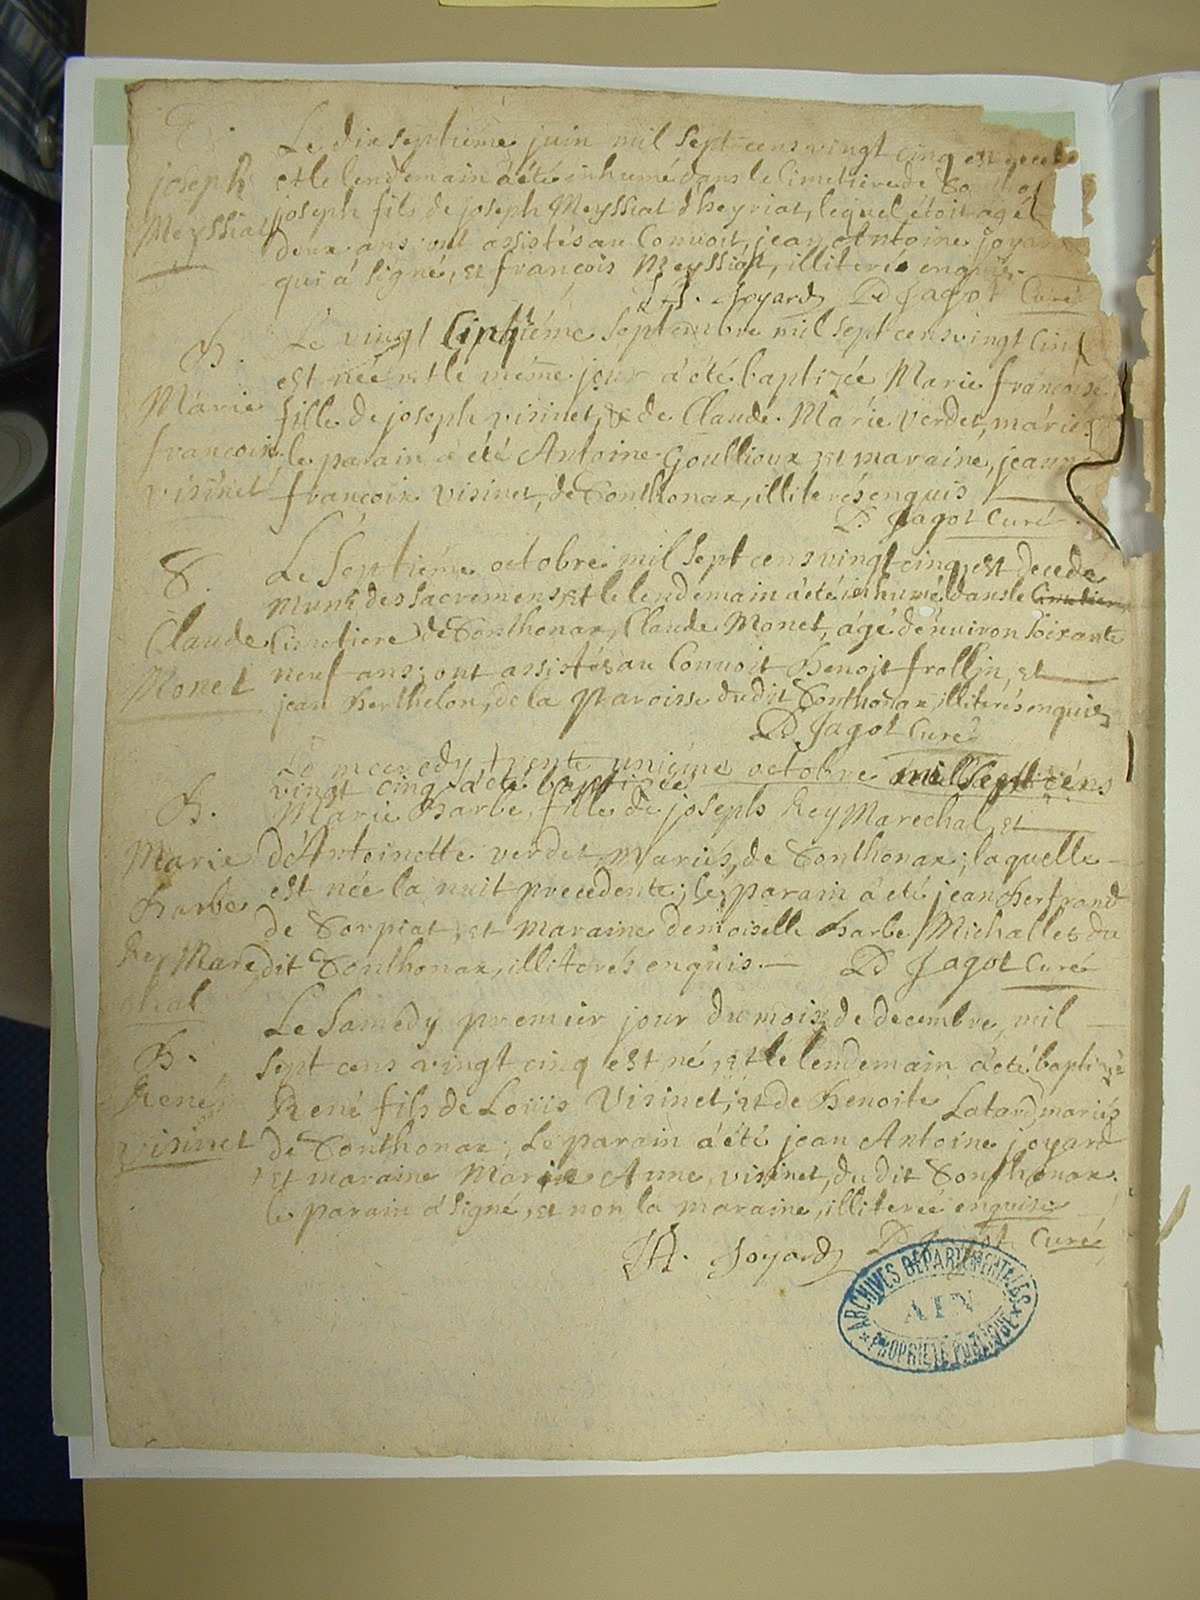 Le dix septiéme juin mil sept cens vingt cinq est decedé
joseph et le lendemain a été inhumé dans le Cimetiere de
Meyssiat joseph fils de joseph Meyssiat d'heyriat, lequel étoit agé
deux ans; ont assistés au Convoit, jean Antoine joyard
qui a signé, et françois Meyssiat, illiteré enquis
JA. Joyard D Jagot Curé
B. Le vingt septiéme septembre mil sept cens vingt cinq
est née et le méme jour a été baptizée Marie françoise
Marie fille de joseph visinet, & de Claude Marie Verdet, mariés
francoise le parain a été Antoine Goullioux et maraine, jeanne
visinet francoise Visinet, de Sonthonax, illiterés enquis
D. Jagot Curé
S. Le Septiéme octobre mil sept cens vingt cinq, est decedé
Muni des sacremens, et le lendemain a été inhumé dans le Cimetiere
Claude Cimetiere de Sonthonax, Claude Monet, agé d'environ soixante
Monet neuf ans; ont assistés au Convoit Benoit frollin, et
jean Berthelon, de la Paroisse dudit Sonthonax, illiterés enquis
D Jagot Curé
Le mercredy trente uniéme octobre mil sept cens
vingt cinq a été baptizée
B. Marie Barbe, fille de joseph Rey Marechal, et
Marie d'Antoinette verdet, Mariés, de Sonthonax; laquelle
Barbe est née la nuit precedente; le parain a été jean Bertrand
de Sorpiat, et maraine demoiselle Barbe Michallet du
Rey Mare dit Sonthonax, illiterés enquis. D Jagot Curé
chal
Le Samedy premier jour du mois de decembre, mil
B. sept cens vingt cinq est né, et le lendemain a été baptizé
René René fils de Loüis Visinet, et de Benoite Latard, mariés
visinet de Sonthonax; Le parain a été jean Antoine joyard
et maraine Marie Anne visinet, du dit Sonthonax.
le parain a signé, et non la maraine, illiterée enquise
JA. Joyard D Jagot Curé
ARCHIVES DEPARTEMENTALES
AIN
PROPRIETE PUBLIQUE